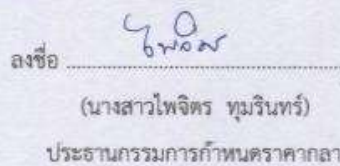 ลงชื่อ ไพจิตร
(นางสาวไพจิตร ทุมรินทร์)
ประธานกรรมการกำหนดราคากลา